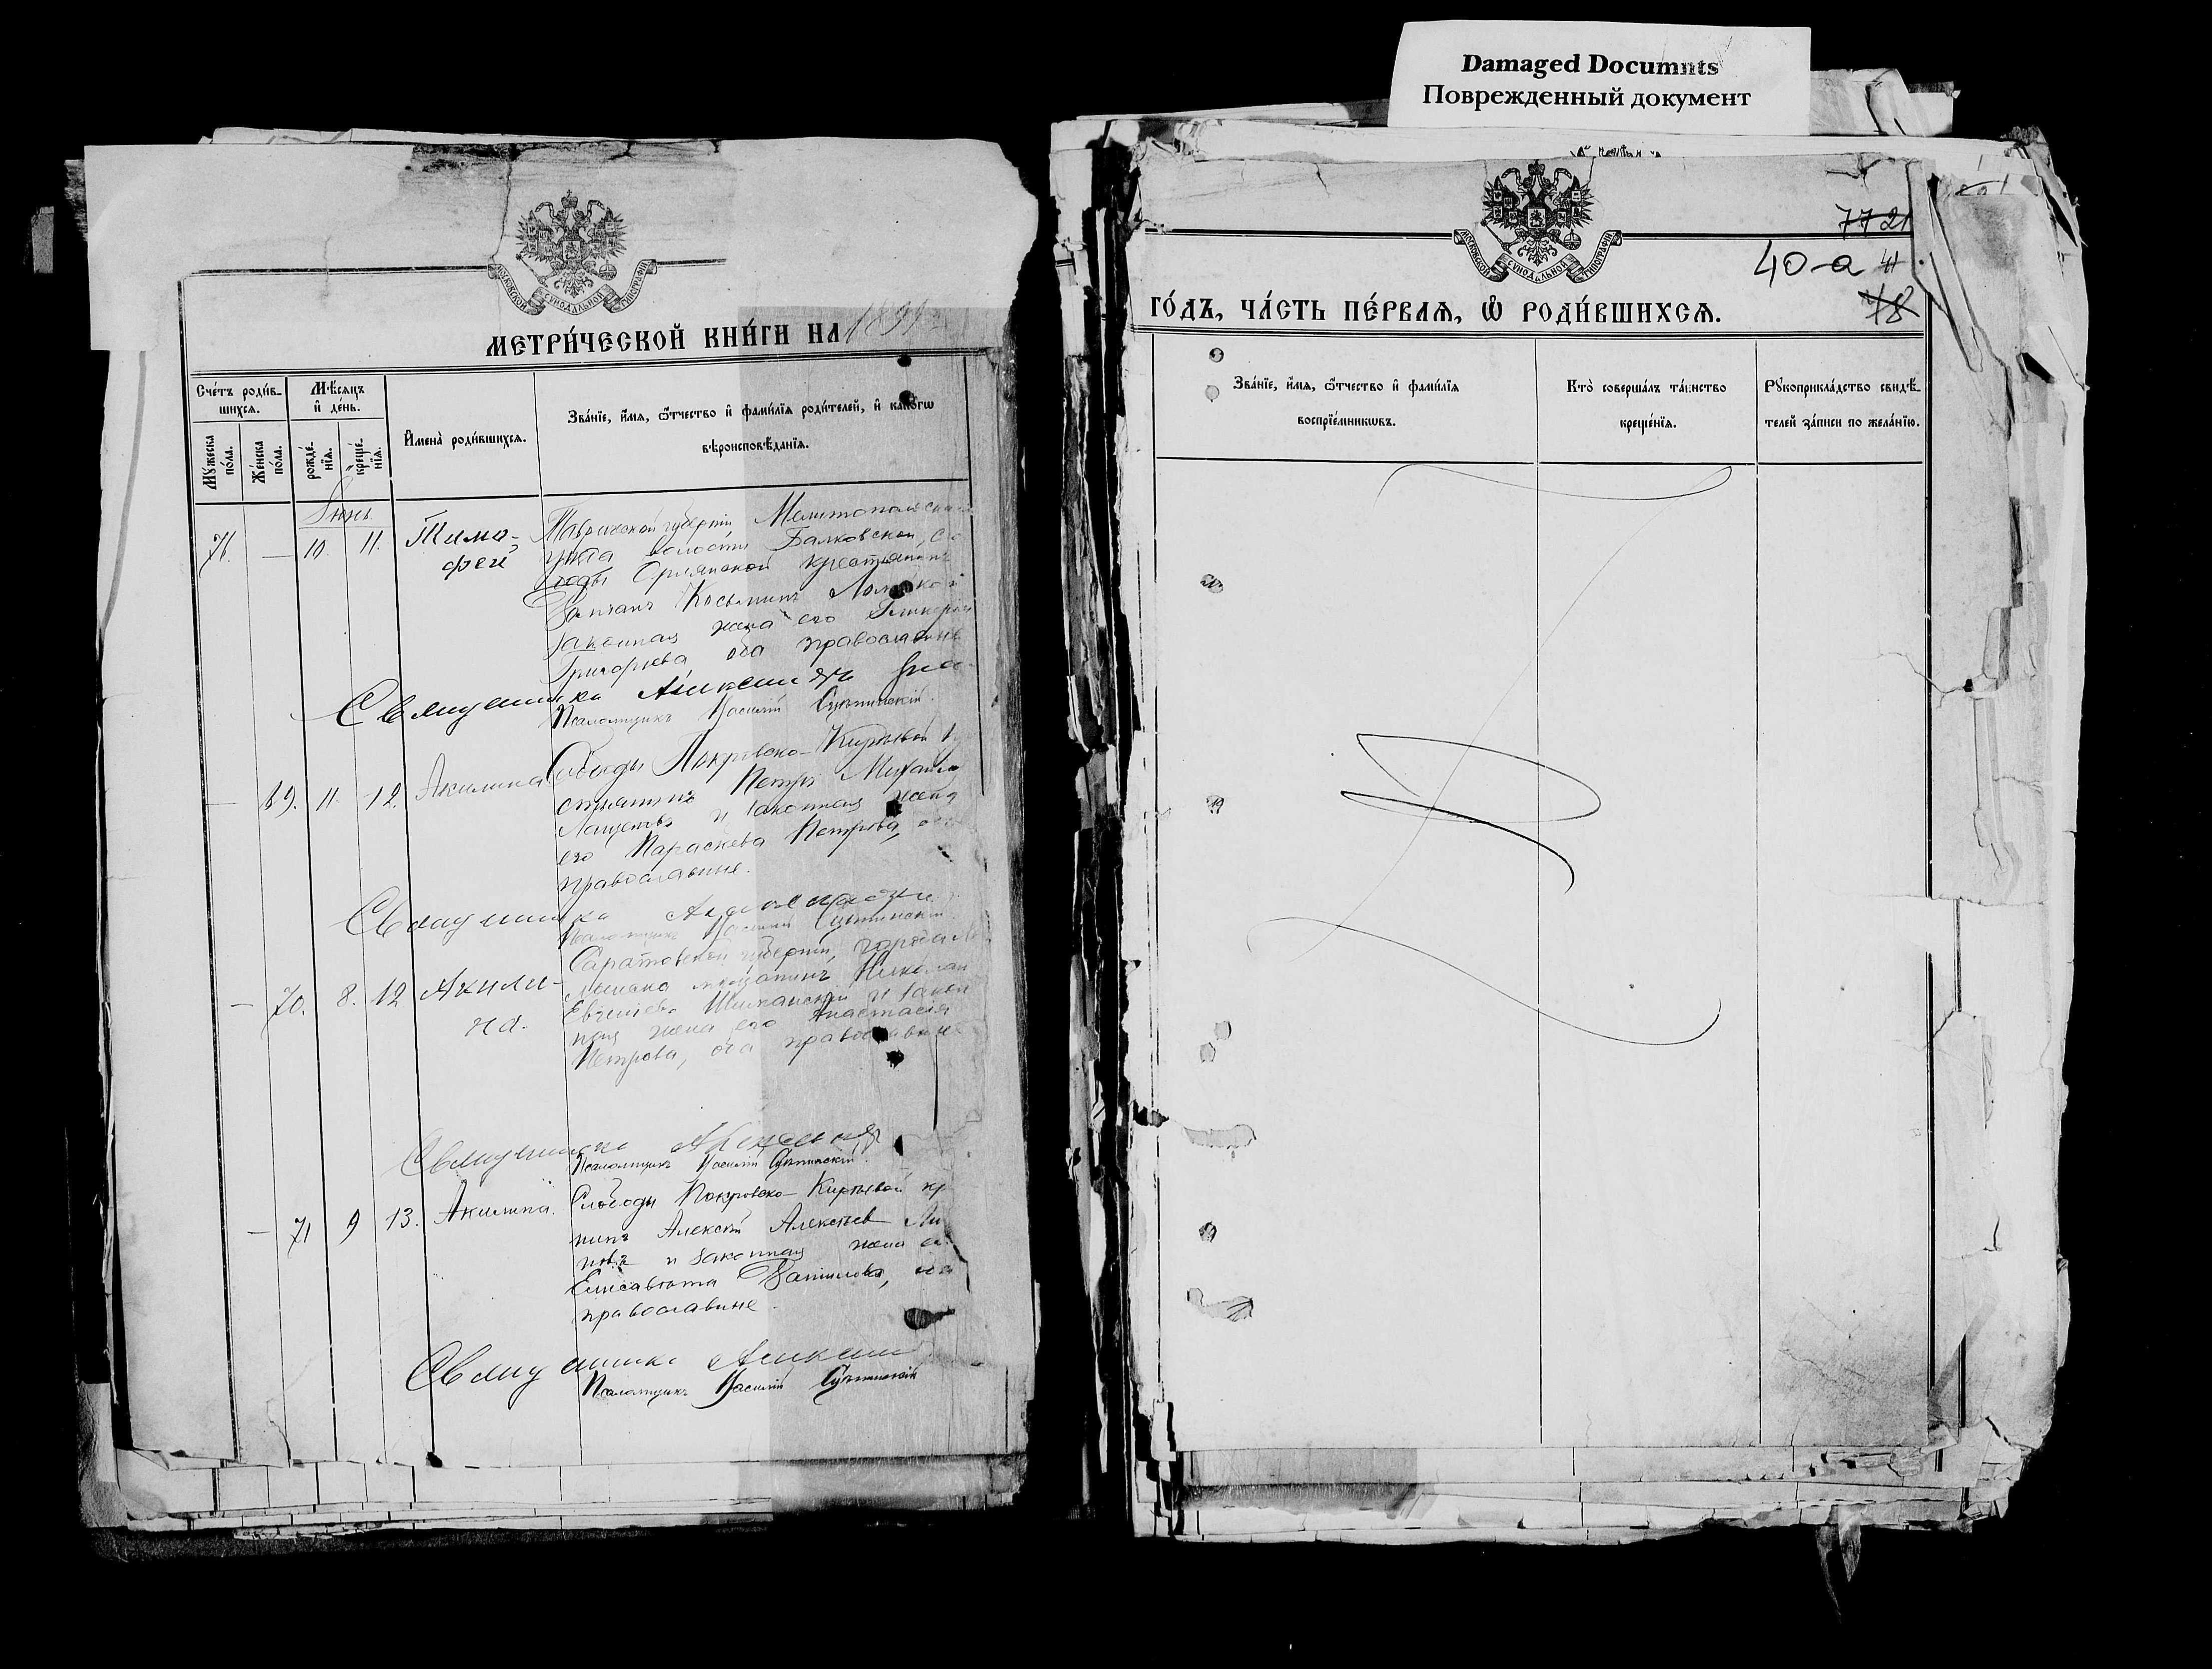 Damaged Documnts
Поврежденный документ
МОСКОВСКОЙ СУНОДАЛЬНОЙ ТИПОГРАФІИ
МЕТРИ́ЧЕСКОЙ КНИ́ГИ НА 1899
Сче́тъ роди́в-
шихся.
Мѣ́сяцъ
и҆ де́нь.
Мꙋ́жеска
по́ла.
Же́нска
по́ла.
рожде́-
нїя.
креще́-
нїя.
И҆мена̀ роди́вшихся.
Зва́нїе, и҆́мя, ѻ҆́тчество и҆ фами́лїя роди́телей, и҆ како́гѡ
вѣроисповѣ́данїя.
Іюнь
71. — 10. 11. Тимо-
фей
Таврической губерніи Мелитопольска
уѣзда волости Балковской, сло
боды Орлянской крестьянинъ
Косьминъ
законная жена его Гликерія
Григорьева, оба православные
Священникъ Алексій
Псаломщикъ Василій
— 69. 11. 12. Акилина
Слободы Покровско-Киреевой кре
стьянинъ Петръ Михайло
и законная жена
его Параскева Петрова, оба
православные.
Священникъ
Псаломщикъ Василій
— 70. 8. 12 Акили-
на.
Саратовской губерніи, города
мѣщанинъ Николай
Евгеніевъ и закон
ная жена его Анастасія
Петрова, оба православные
Священникъ Алексій
Псаломщикъ Василій
— 71 9 13. Акилина.
Слободы Покровско-Киреевой кр
нинъ Алексѣй Алексѣевъ
новъ и законная жена ег
Елисавета Данилова, оба
православные.
Священникъ Алексій
Псаломщикъ Василій
МОСКОВСКОЙ СУНОДАЛЬНОЙ ТИПОГРАФІИ
77 21
40-а 41
78
ГО́ДЪ, ЧА́СТЬ ПЕ́РВАЯ, Ѡ҆ РОДИ́ВШИХСЯ.
Зва́нїе, и҆́мя, ѻ҆́тчество и҆ фами́лїя
воспрїе́мникѡвъ.
Кто̀ соверша́лъ та́инство
креще́нїя.
Рꙋкоприкла́дство свидѣ́-
телей за́писи по жела́нїю.